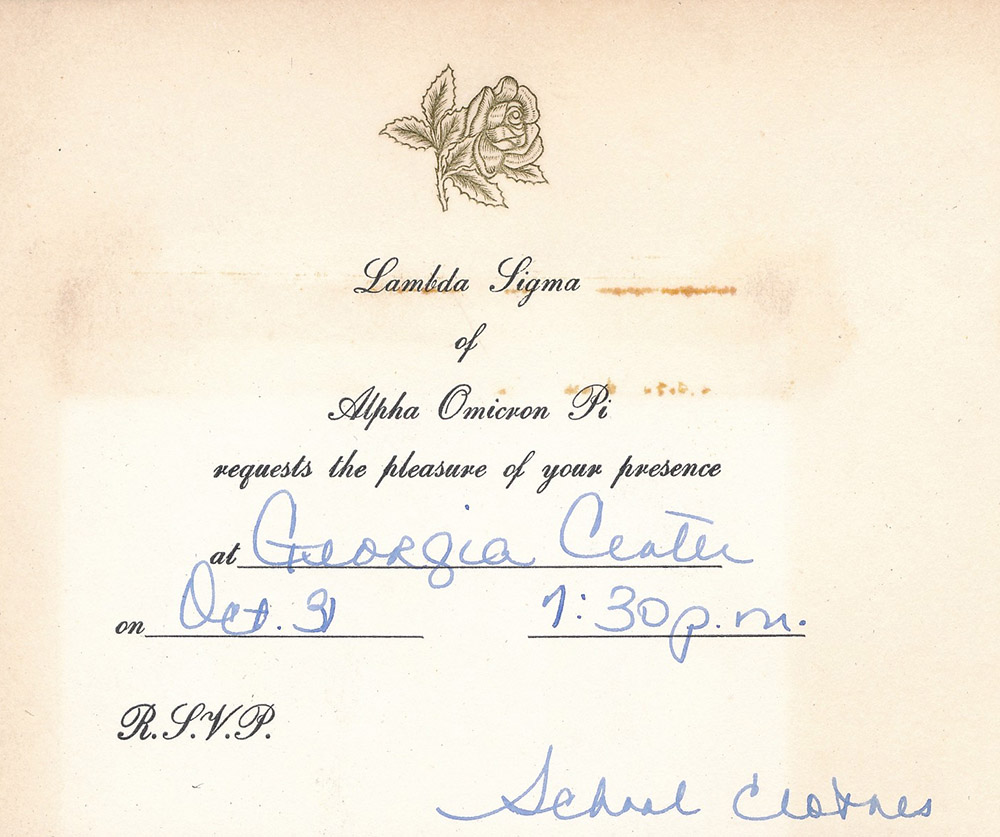 Lambda Sigma
of
Alpha Omicron Pi
requests the pleasure of your presence
at Georgia Center
on Oct. 31 1:30 p.m.
R.S.V.P.
School Clothes